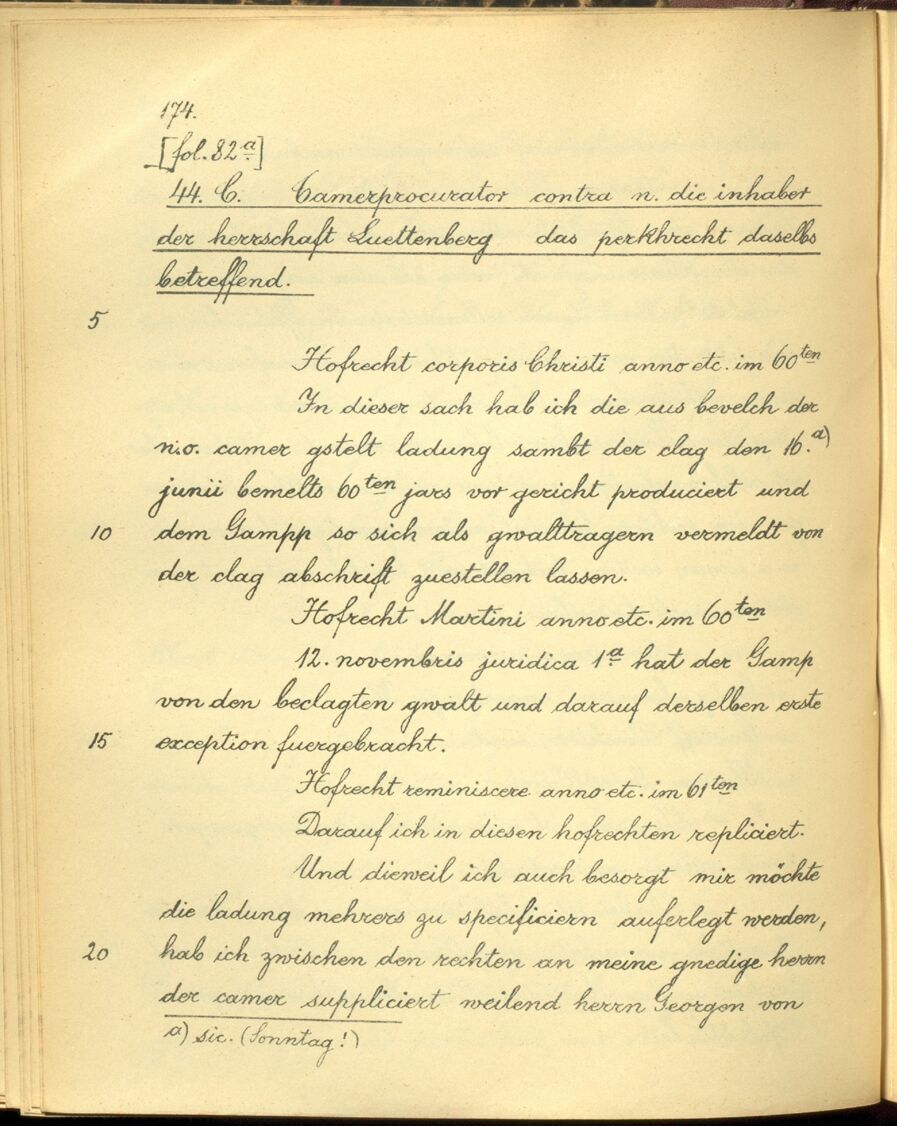 174.
[fol. 82ª]
44. C. Camerprocurator contra n. die inhaber
der herrschaft Luettenberg das perkhrecht daselbs
betreffend.
5
Hofrecht corporis Christi anno etc. im 60ten
In dieser sach hab ich die aus bevelch der
n.o. camer gstelt ladung sambt der clag den 16.a)
junii bemelts 60ten jars vor gericht produciert und
10 dem Gampp so sich als gwalttragern vermeldt von
der clag abschrift zuestellen lassen.
Hofrecht Martini anno etc. im 60ten
12. novembris juridica 1ª hat der Gamp
von den beclagten gwalt und darauf derselben erste
15 exception fuergebracht.
Hofrecht reminiscere anno etc. im 61ten
Darauf ich in diesen hofrechten repliciert.
Und dieweil ich auch besorgt mir möchte
die ladung mehrers zu specificiern auferlegt werden,
20 hab ich zwischen den rechten an meine gnedige herrn
der camer suppliciert weilend herrn Georgen von
a) sic. (Sonntag!)